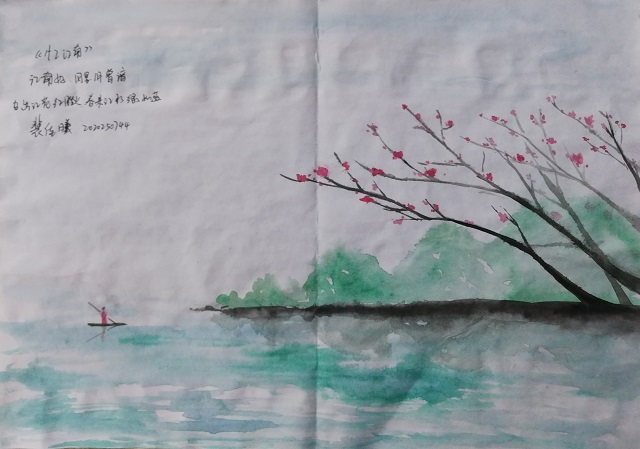 《忆江南》
江南好 风景旧曾谙
日出江花红胜火 春来江水绿如蓝
2020250744